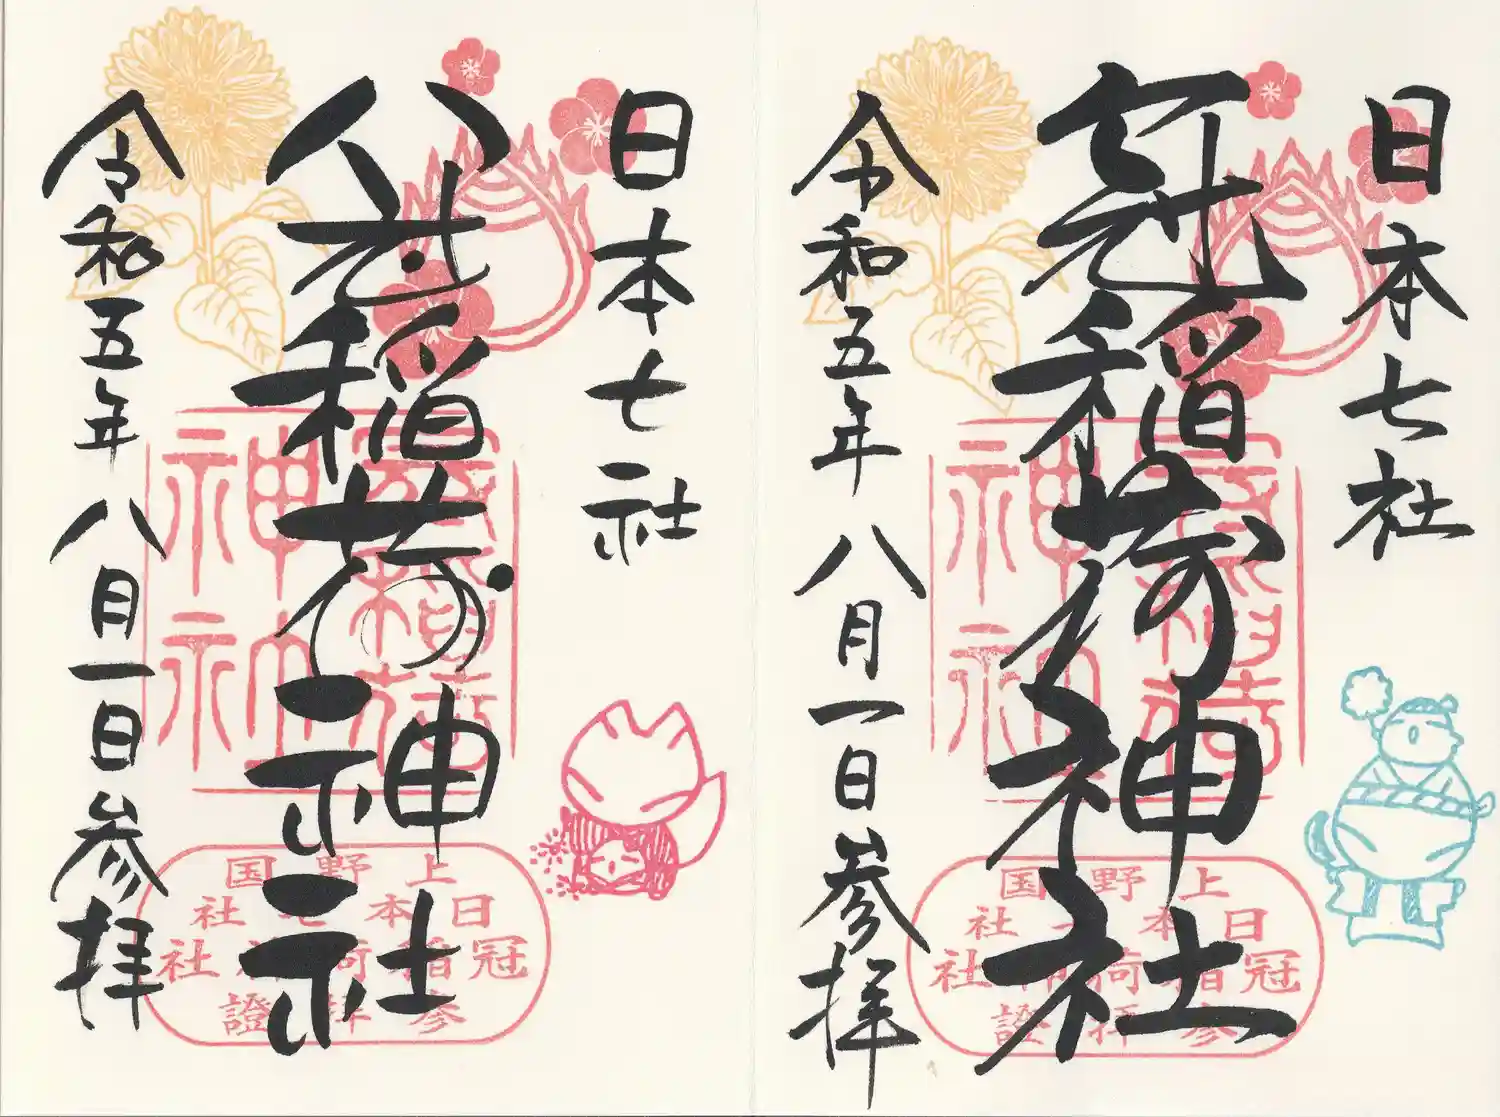 日本七社
冠稲荷神社
令和五年八月一日参拝
上野国
日本七社
冠稲荷神社
参拝證
日本七社
冠稲荷神社
令和五年八月一日参拝
上野国
日本七社
冠稲荷神社
参拝證